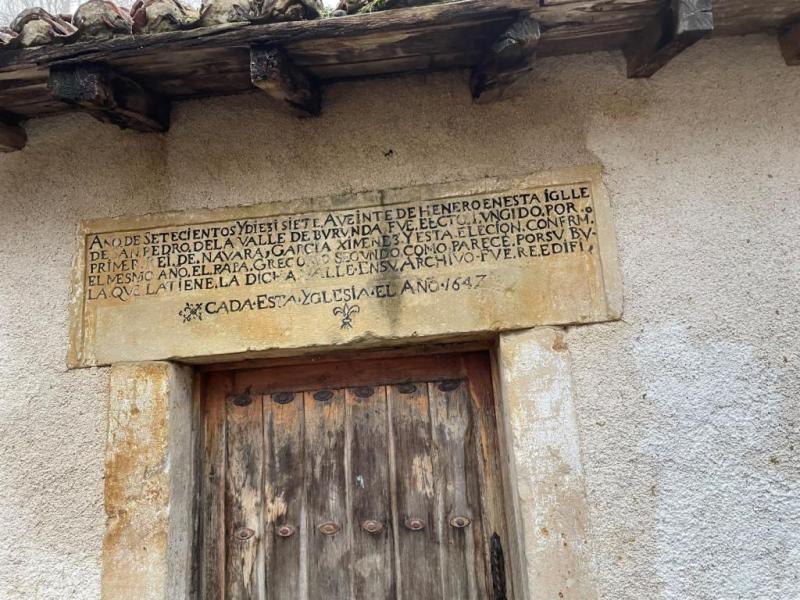 AÑO DE SETECIENTOS Y DIESI SIETE, A VEINTE DE HENERO EN ESTA IGLLE
DE SAN PEDRO, DE LA VALLE DE BURUNDA FVE, ELECTO, I VNGIDO, POR.
PRIMER REI, DE, NAVARA, GARCIA XIMENEZ Y ESTA, ELECION, CONFRM.
EL MESMO AÑO, EL PAPA, GREGORIO SEGUNDO, COMO, PARECE, POR SV BV.
LA QVE, LA TIENE, LA DICHA VALLE EN SV, ARCHIVO FVE, REEDIFI
CADA ESTA YGLESIA EL AÑO 1647